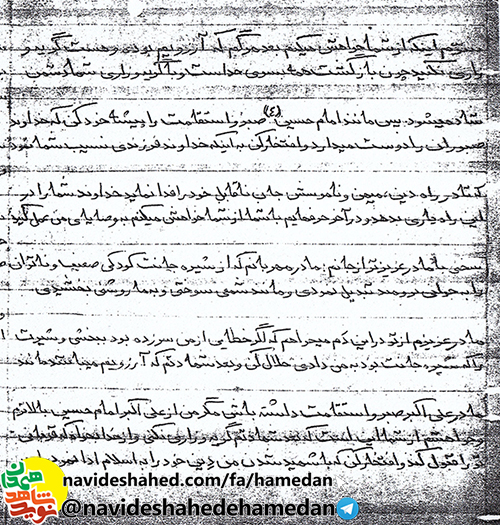 شما اینکه از شما خواهش میکنم بعد مرگم که آرزویم بوده و هست گریه و
زاری نکنید چون بازگشت همه بسوی خداست و با گریه و زاری شما دشمن
شاد میشود. پس مانند امام حسین (ع) صبر و استقامت را پیشتاز خود کن که خداوند
صبوران را دوست میدارد و افتخار کن به اینکه خداوند فرزندی نسیب شما نمود
که تا در راه دین، میهن و ناموستش جان ناقابل خود را فدا نماید خداوند شما را در
این راه یاری بدهد و در آخر حرفهایم با شما از شما خواهش میکنم به وصایای من عمل کنید
سخنی با مادر عزیزتر از جانم: مادر مهربانم که از شیره جانت کودکی ضعیف و ناتوان
را به جوانی نرومند تبدیل نمودی و مانند شمعی سوختی و بما روشنی بخشیدی
مادر عزیزم از تو در این دم میخواهم که اگر خطایی از من سر زده بود ببخشی و شیرت
را که شیره جانت بود به من دادی حلال کن و بعد شهادتم که آرزویم میباشد مانند
مادر علی اکبر صبر و استقامت داشته باش مگر من از علی اکبر امام حسین بالاترم
و خواهشم از شما این است که بعد شهادتم گریه و زاری نکنی و از خدا بخواه که قربانی
ترا قبول کند و افتخار کن که با شهید شدن من دین خود را به اسلام ادا نمودی
نوید شاهد
همدان
navideshahed.com/fa/hamedan
@navideshahedehamedan